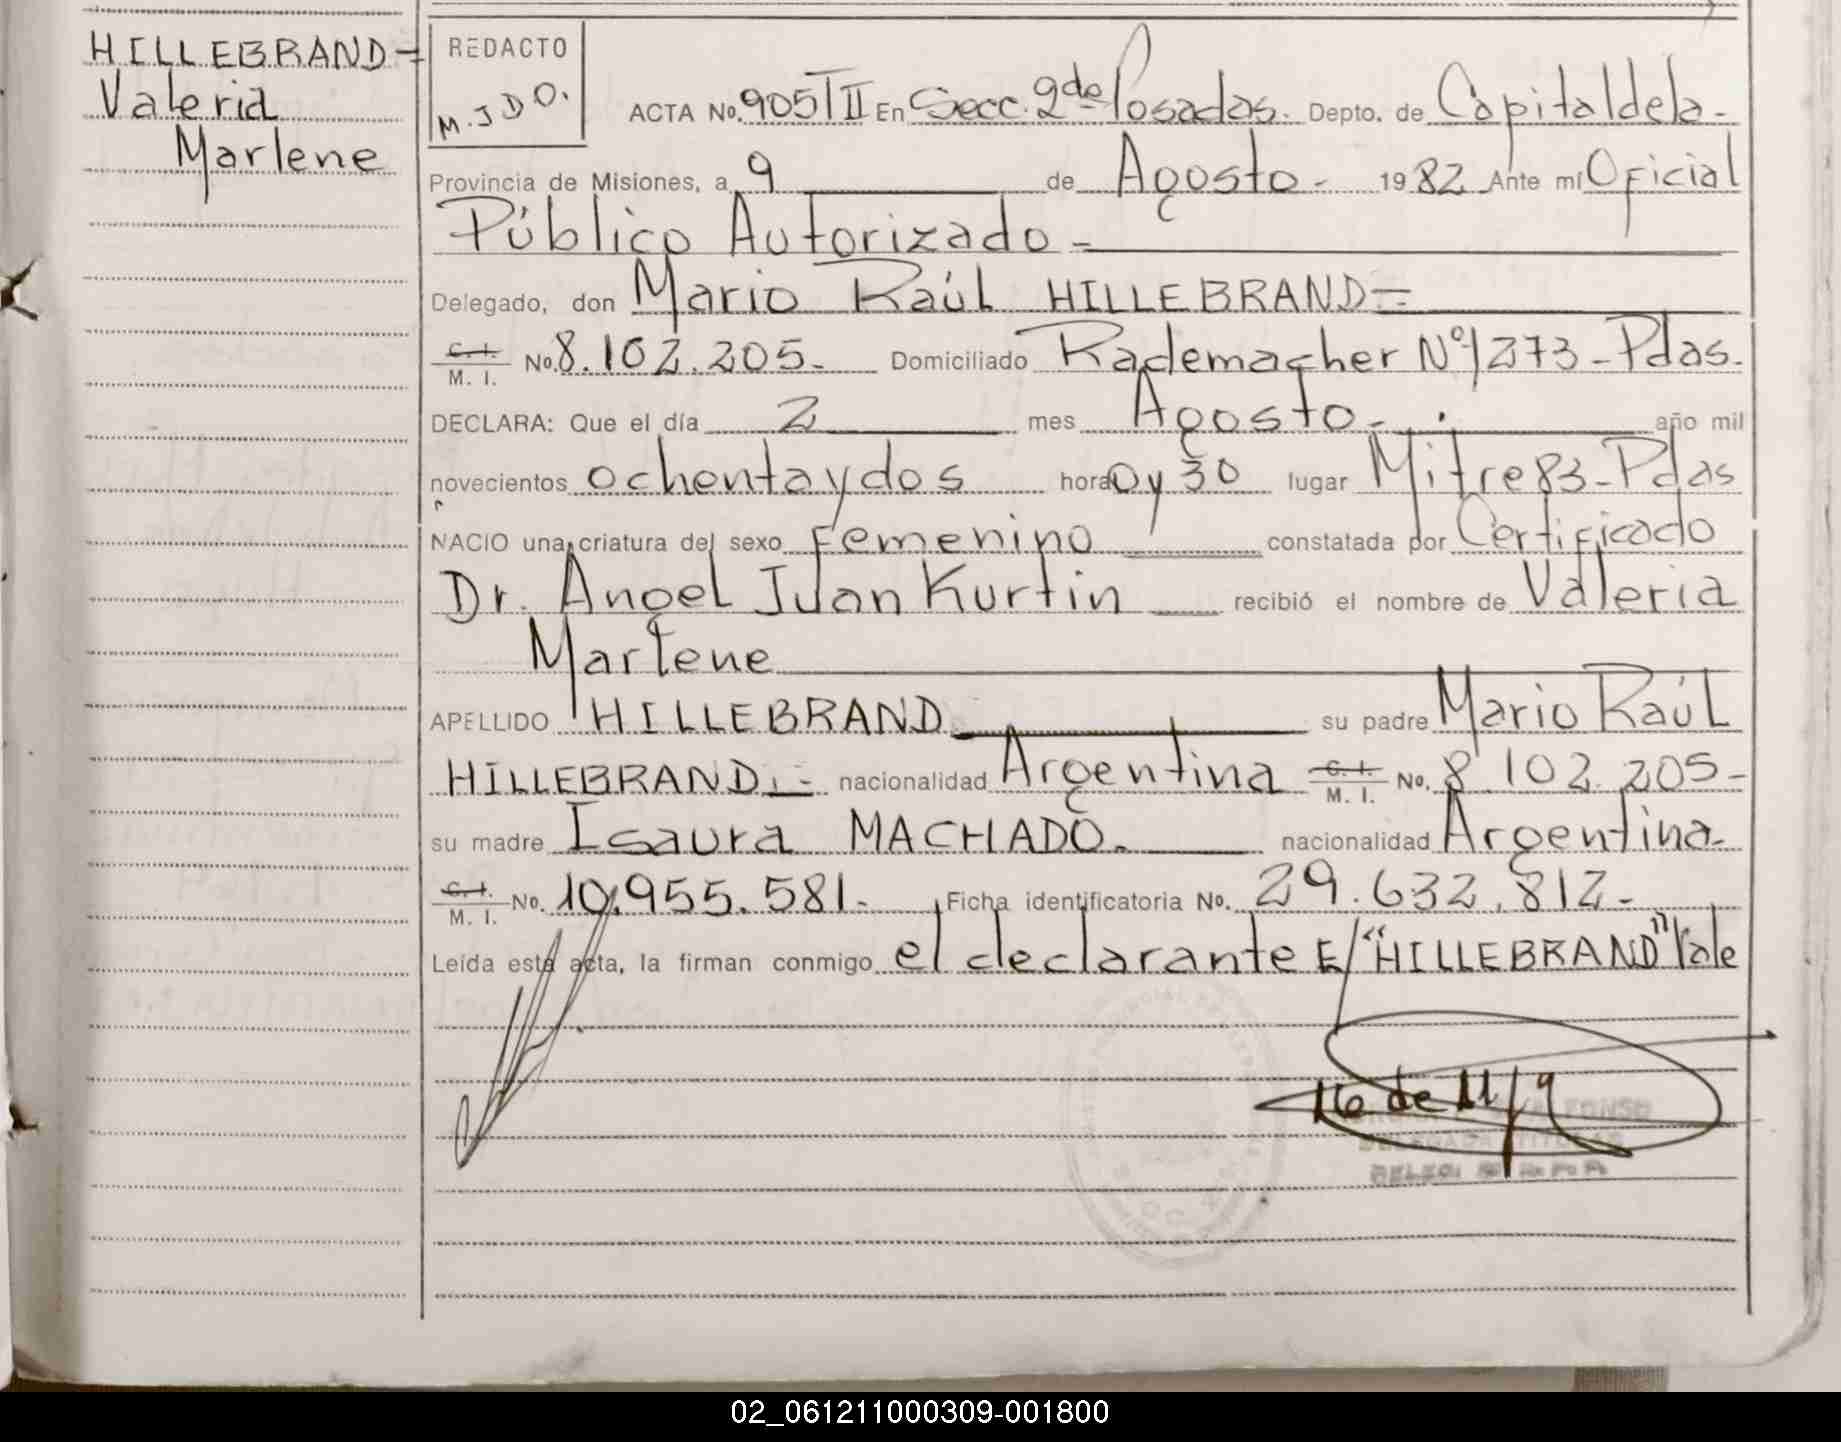 HILLEBRAND=
Valeria
Marlene
REDACTO
M.J D O.
ACTA No. 905 T II En Secc. 2da Posadas. Depto. de Capital de la-
Provincia de Misiones, a 9 de Agosto - 1982 Ante mí Oficial
Público Autorizado -
Delegado, don Mario Raúl HILLEBRAND=
C. I. M. I. No. 8.102.205- Domiciliado Rademacher Nº 1273 - Pdas.
DECLARA: Que el día 2 mes Agosto - año mil
novecientos ochenta y dos hora 0 y 30 lugar Mitre 83 - Pdas
NACIO una criatura del sexo Femenino constatada por Certificado
Dr. Angel Juan Kurtin recibió el nombre de Valeria
Marlene
APELLIDO HILLEBRAND su padre Mario Raúl
HILLEBRAND.- nacionalidad Argentina C. I. M. I. No. 8 102.205-
su madre Isaura MACHADO. nacionalidad Argentina-
C. I. M. I. No. 10.955.581- Ficha identificatoria No. 29.632.812-
Leída esta acta, la firman conmigo el declarante E/"HILLEBRAND" Vale
16 de 11/9
DELEGADA TITULAR
02_061211000309-001800